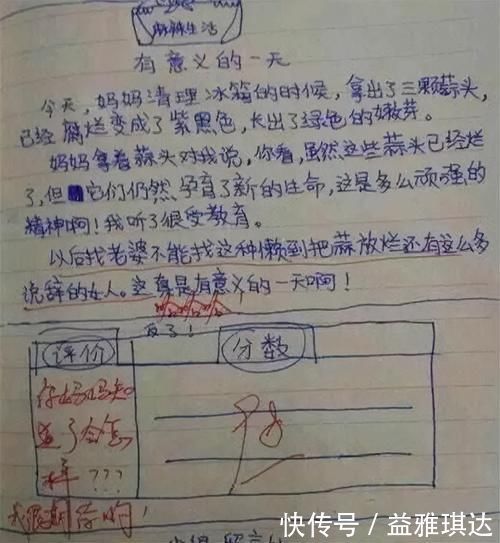 麻辣生活
有意义的一天
今天,妈妈清理冰箱的时候,拿出了三颗蒜头,
已经腐烂变成了紫黑色,长出了绿色的嫩芽。
妈妈拿着蒜头对我说,你看,虽然这些蒜头已经烂
了,但它们仍然孕育了新的生命,这是多么顽强的
精神啊!我听了很受教育。
以后找老婆不能找这种懒到把蒜放烂还有这么多
说辞的女人。这真是有意义的一天啊!
哈哈哈
评价
分数
你妈妈知
道了会怎
样???
我很期待啊!
快传号/益雅琪达